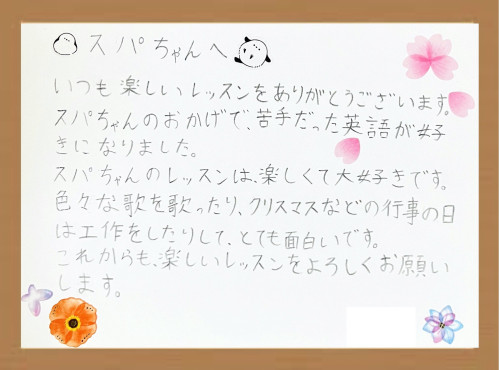 スパちゃんへ
いつも楽しいレッスンをありがとうございます。
スパちゃんのおかげで、苦手だった英語が好
きになりました。
スパちゃんのレッスンは、楽しくて大好きです。
色々な歌を歌ったり、クリスマスなどの行事の日
は工作をしたりして、とても面白いです。
これからも、楽しいレッスンをよろしくお願い
します。